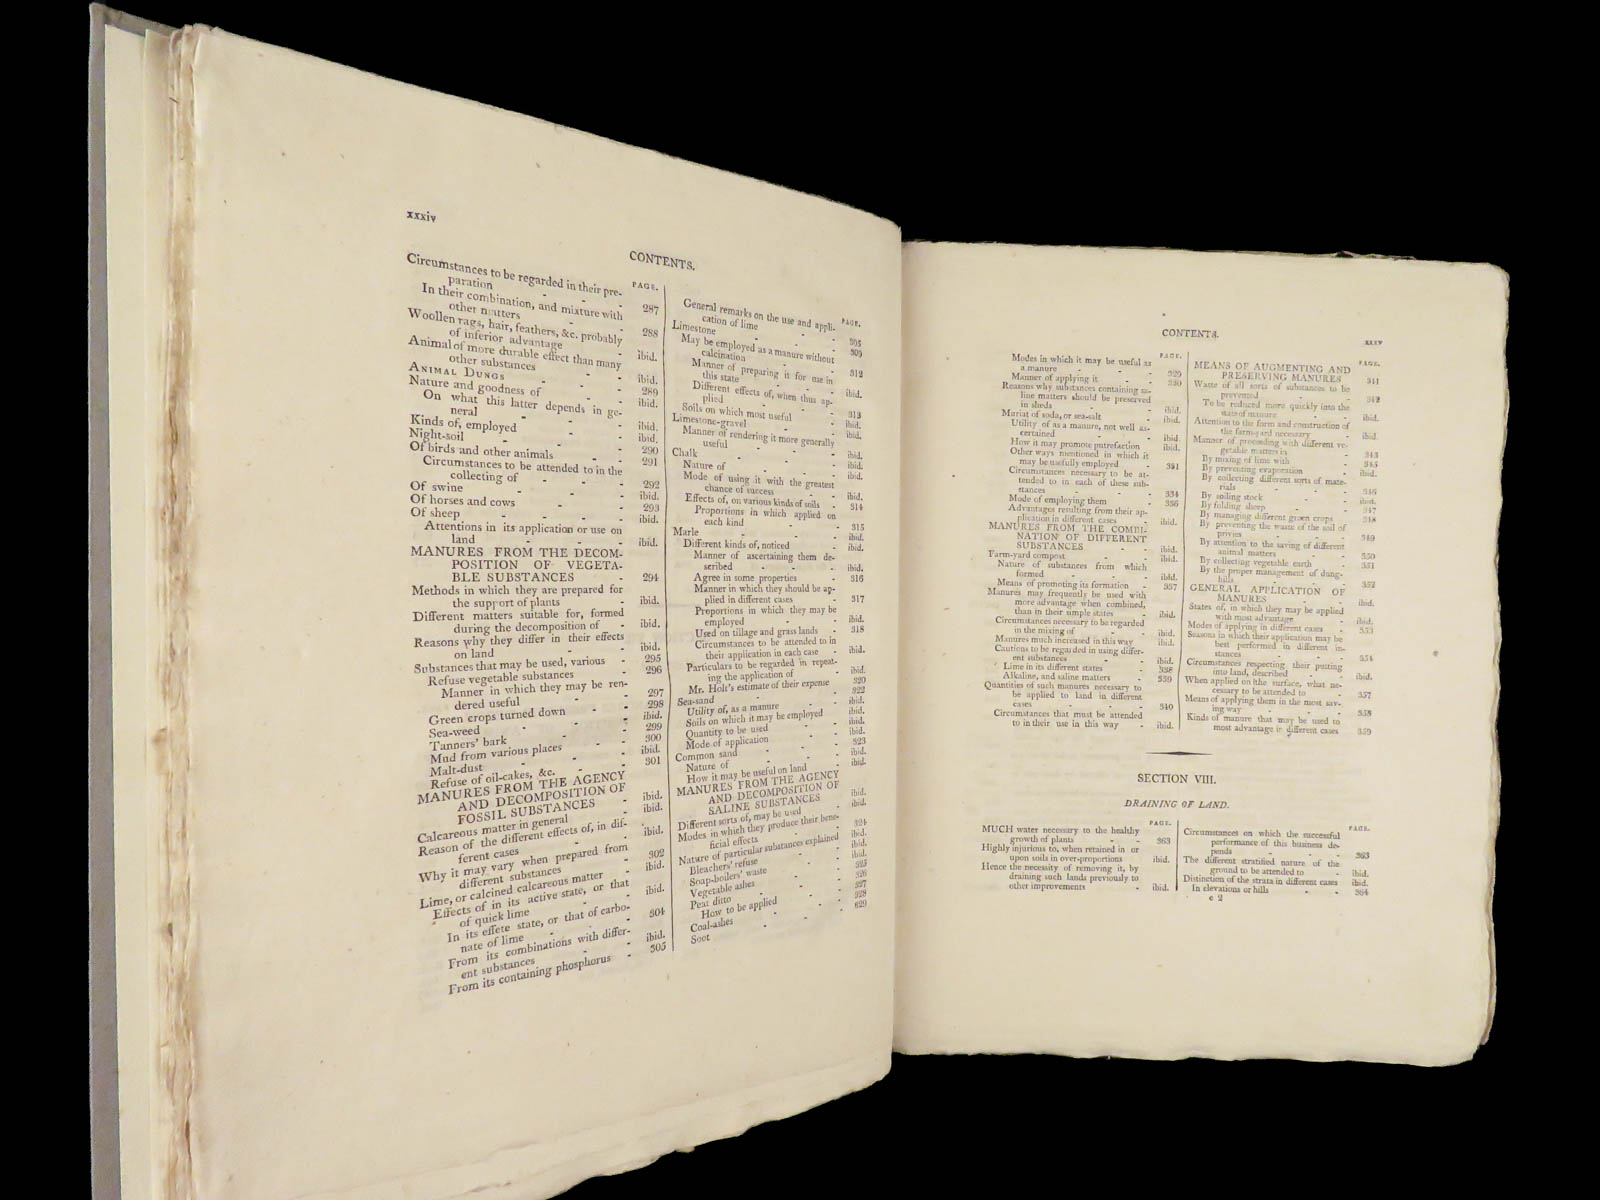 xxxiv
CONTENTS.
PAGE.
Circumstances to be regarded in their pre-
paration - - - 287
In their combination, and mixture with
other matters - - 288
Woollen rags, hair, feathers, &c. probably
of inferior advantage - ibid.
Animal of more durable effect than many
other substances - - ibid.
ANIMAL DUNGS - - 289
Nature and goodness of - - ibid.
On what this latter depends in ge-
neral - - - ibid.
Kinds of, employed - - ibid.
Night-soil - - - 290
Of birds and other animals - - 291
Circumstances to be attended to in the
collecting of - - - 292
Of swine - - - ibid.
Of horses and cows - - 293
Of sheep - - - ibid.
Attentions in its application or use on
land - - - ibid.
MANURES FROM THE DECOM-
POSITION OF VEGETA-
BLE SUBSTANCES - 294
Methods in which they are prepared for
the support of plants - ibid.
Different matters suitable for, formed
during the decomposition of - ibid.
Reasons why they differ in their effects
on land - - ibid.
Substances that may be used, various - 295
Refuse vegetable substances - 296
Manner in which they may be ren-
dered useful - - 297
Green crops turned down - - 298
Sea-weed - - - ibid.
Tanners' bark - - 299
Mud from various places - - 300
Malt-dust - - - ibid.
Refuse of oil-cakes, &c. - - 301
MANURES FROM THE AGENCY
AND DECOMPOSITION OF
FOSSIL SUBSTANCES - ibid.
Calcareous matter in general - ibid.
Reason of the different effects of, in dif-
ferent cases - - ibid.
Why it may vary when prepared from
different substances - 302
Lime, or calcined calcareous matter - ibid.
Effects of in its active state, or that
of quick lime - - ibid.
In its effete state, or that of carbo-
nate of lime - - - 304
From its combinations with differ-
ent substances - - ibid.
From its containing phosphorus - 305
PAGE.
General remarks on the use and appli-
cation of lime - - 305
Limestone - - - 309
May be employed as a manure without
calcination - - - 312
Manner of preparing it for use in
this state - - - ibid.
Different effects of, when thus ap-
plied - - - 313
Soils on which most useful - - ibid.
Limestone-gravel - - ibid.
Manner of rendering it more generally
useful - - - ibid.
Chalk - - - ibid.
Nature of - - - ibid.
Mode of using it with the greatest
chance of success - - ibid.
Effects of, on various kinds of soils - 314
Proportions in which applied on
each kind - - 315
Marle - - - ibid.
Different kinds of, noticed - - ibid.
Manner of ascertaining them de-
scribed - - - ibid.
Agree in some properties - 316
Manner in which they should be ap-
plied in different cases - 317
Proportions in which they may be
employed - - ibid.
Used on tillage and grass lands - 318
Circumstances to be attended to in
their application in each case - ibid.
Particulars to be regarded in repeat-
ing the application of - ibid.
Mr. Holt's estimate of their expense 320
Sea-sand - - - 322
Utility of, as a manure - - ibid.
Soils on which it may be employed - ibid.
Quantity to be used - - ibid.
Mode of application - - ibid.
Common sand - - - 323
Nature of - - - ibid.
How it may be useful on land - ibid.
MANURES FROM THE AGENCY
AND DECOMPOSITION OF
SALINE SUBSTANCES - ibid.
Different sorts of, may be used - ibid.
Modes in which they produce their bene-
ficial effects - - - 324
Nature of particular substances explained ibid.
Bleachers' refuse - - ibid.
Soap-boilers' waste - - ibid.
Vegetable ashes - - 325
Peat ditto - - - 326
How to be applied - - 327
Coal-ashes - - - 328
Soot - - - 629
CONTENTS.
xxxv
PAGE.
Modes in which it may be useful as
a manure - - - 329
Manner of applying it - - 330
Reasons why substances containing sa-
line matters should be preserved
in sheds - - ibid.
Muriat of soda, or sea-salt - - ibid.
Utility of as a manure, not well as-
certained - - - ibid.
How it may promote putrefaction - ibid.
Other ways mentioned in which it
may be usefully employed - 331
Circumstances necessary to be at-
tended to in each of these sub-
stances - - - 334
Mode of employing them - - 336
Advantages resulting from their ap-
plication in different cases - ibid.
MANURES FROM THE COMBI-
NATION OF DIFFERENT
SUBSTANCES - - ibid.
Farm-yard compost - - ibid.
Nature of substances from which
formed - - - ibid.
Means of promoting its formation - 337
Manures may frequently be used with
more advantage when combined,
than in their simple states - ibid.
Circumstances necessary to be regarded
in the mixing of - - ibid.
Manures much increased in this way - ibid.
Cautions to be regarded in using differ-
ent substances - - ibid.
Lime in its different states - - 338
Alkaline, and saline matters - 339
Quantities of such manures necessary to
be applied to land in different
cases - - - 340
Circumstances that must be attended
to in their use in this way - ibid.
PAGE.
MEANS OF AUGMENTING AND
PRESERVING MANURES 341
Waste of all sorts of substances to be
prevented - - 342
To be reduced more quickly into the
state of manure - - ibid.
Attention to the farm and construction of
the farm-yard necessary - ibid.
Manner of proceeding with different ve-
getable matters in - - 343
By mixing of lime with - - 345
By preventing evaporation - ibid.
By collecting different sorts of mate-
rials - - - 346
By soiling stock - - ibid.
By folding sheep - - 347
By managing different green crops - 348
By preventing the waste of the soil of
privies - - - 349
By attention to the saving of different
animal matters - - 350
By collecting vegetable earth - 351
By the proper management of dung-
hills - - - 352
GENERAL APPLICATION OF
MANURES - - ibid.
States of, in which they may be applied
with most advantage - ibid.
Modes of applying in different cases - 353
Seasons in which their application may be
best performed in different in-
stances - - - 354
Circumstances respecting their putting
into land, described - ibid.
When applied on the surface, what ne-
cessary to be attended to - 357
Means of applying them in the most sav-
ing way - - - 358
Kinds of manure that may be used to
most advantage in different cases 359
SECTION VIII.
DRAINING OF LAND.
PAGE.
MUCH water necessary to the healthy
growth of plants - - 363
Highly injurious to, when retained in or
upon soils in over-proportions ibid.
Hence the necessity of removing it, by
draining such lands previously to
other improvements - ibid.
PAGE.
Circumstances on which the successful
performance of this business de-
pends - - - 363
The different stratified nature of the
ground to be attended to - ibid.
Distinction of the strata in different cases ibid.
In elevations or hills - - 364
e 2